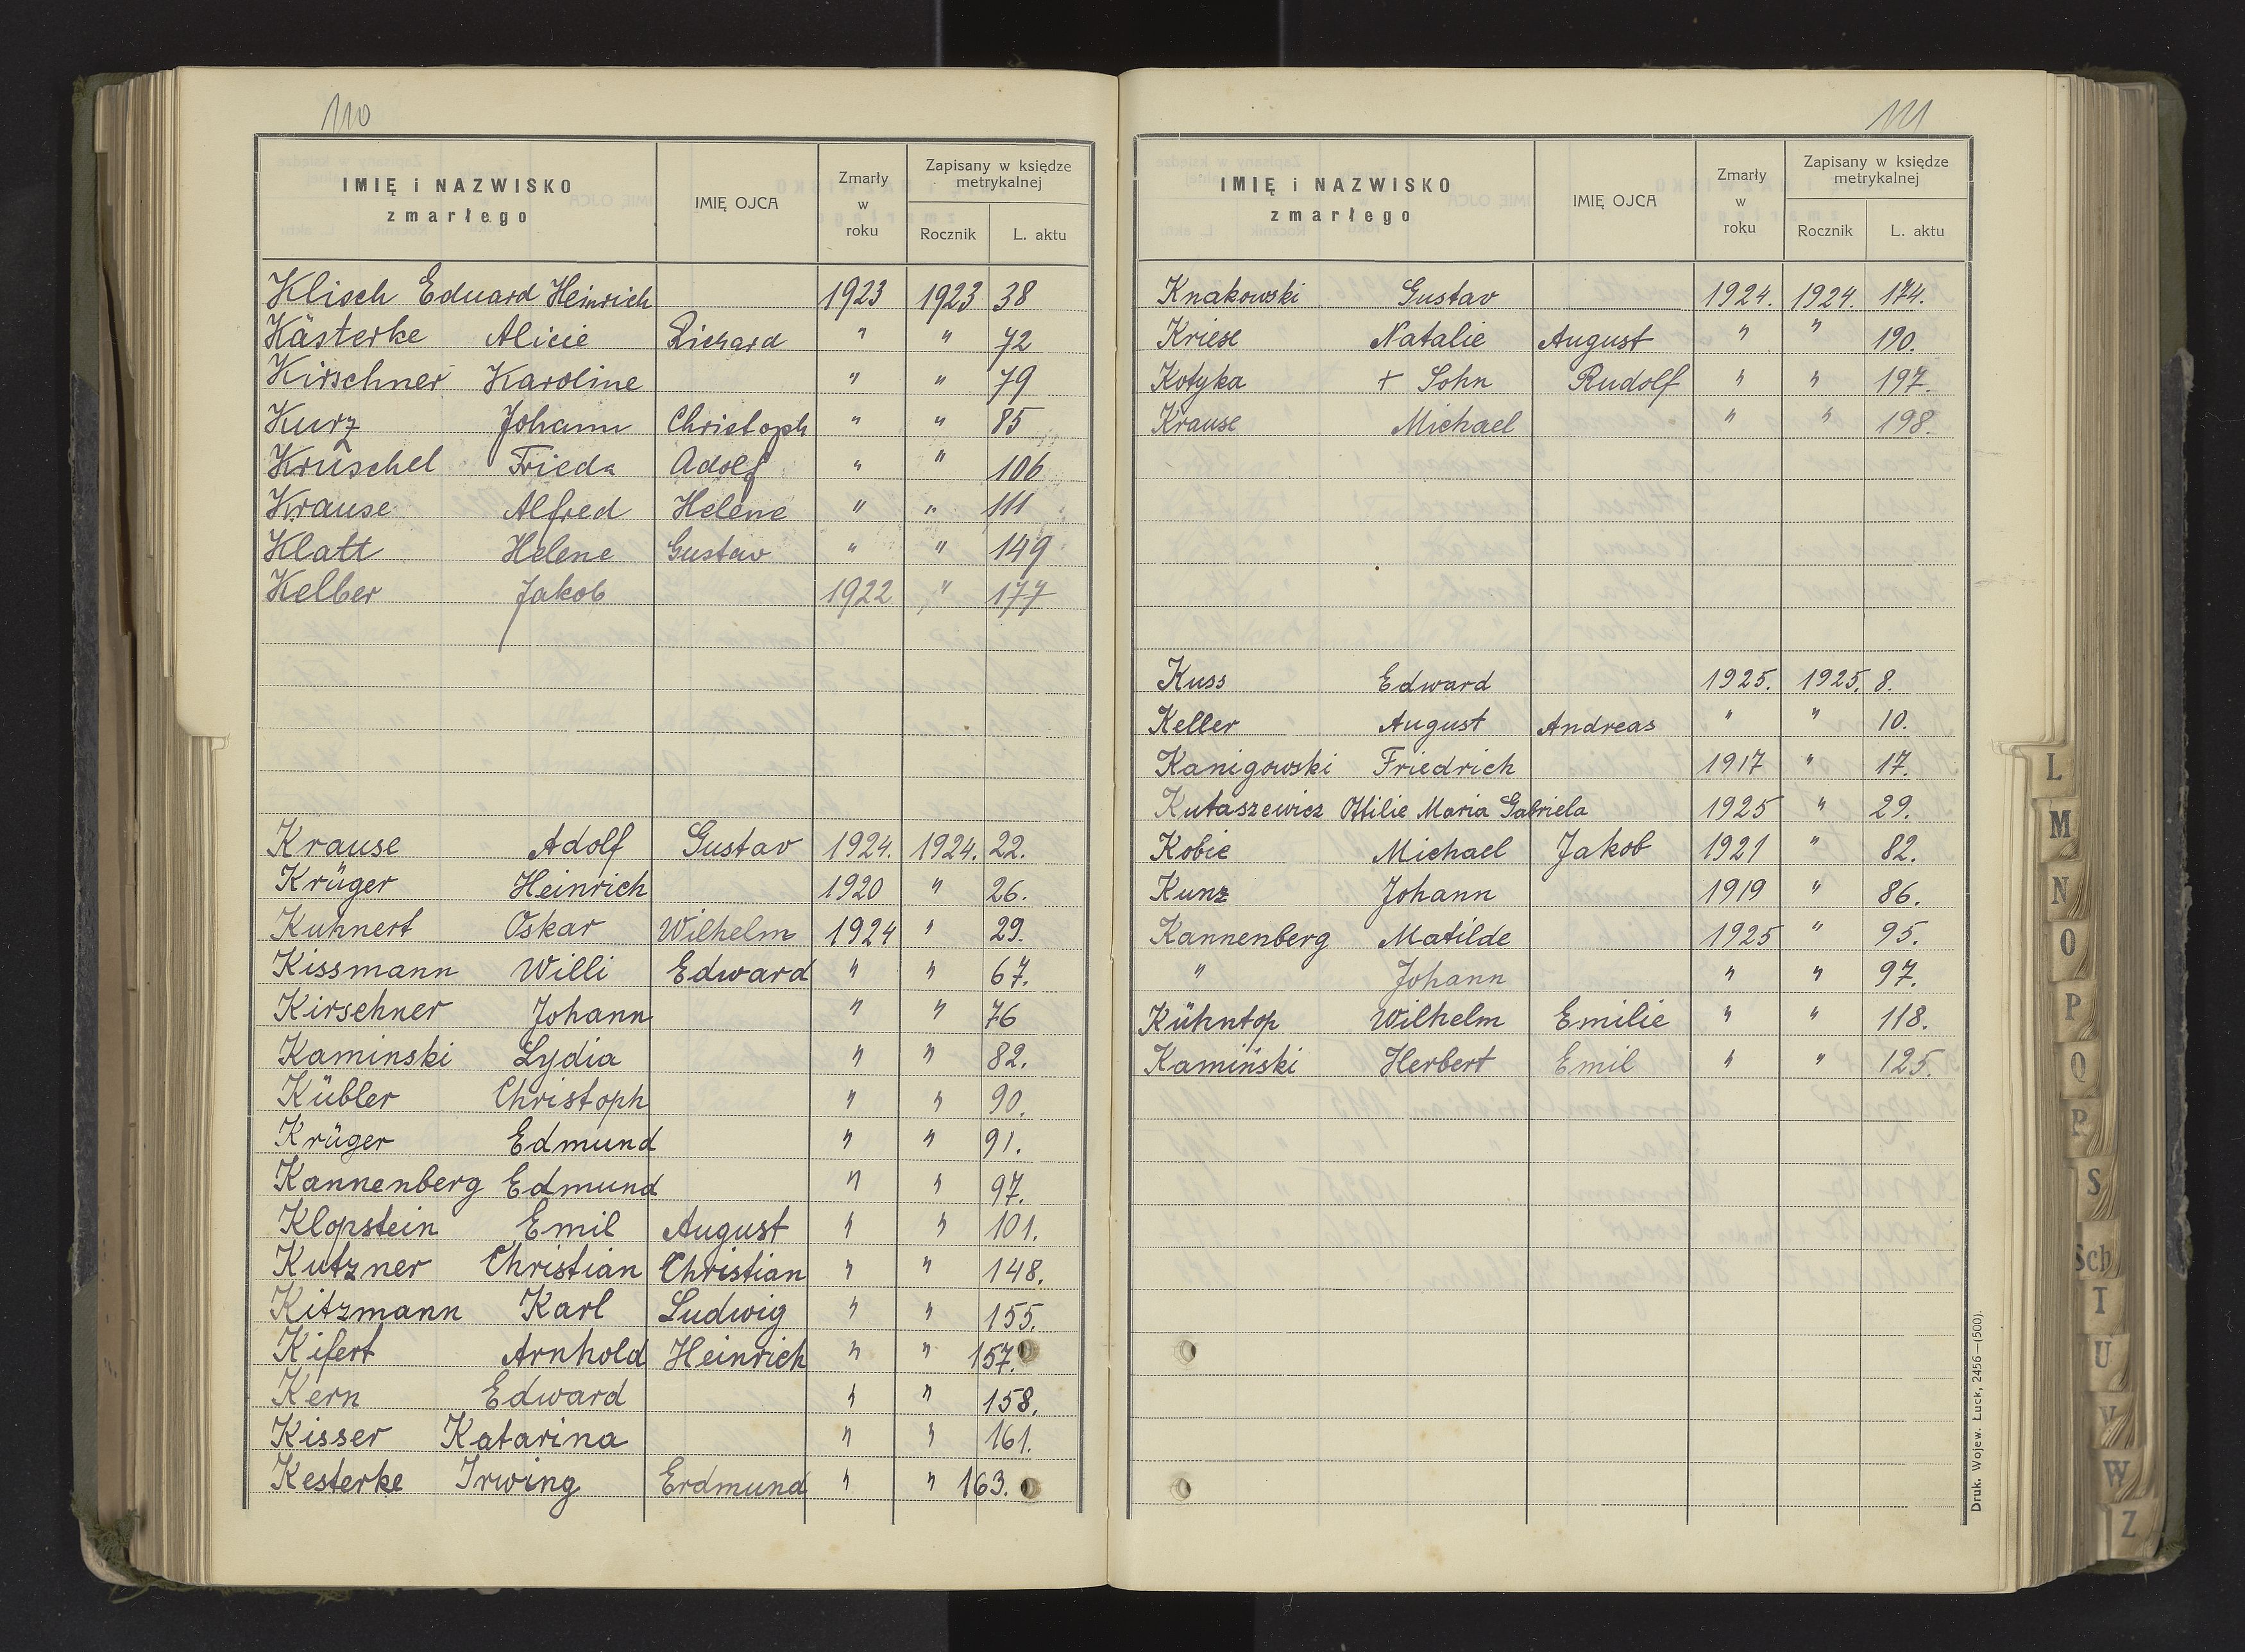 110
IMIĘ i NAZWISKO zmarłego IMIĘ OJCA Zmarły w roku Zapisany w księdze metrykalnej Rocznik L. aktu
Klisch Eduard Heinrich 1923 1923 38
Kästerke Alicie Richard " " 72
Kirschner Karoline " " 79
Kurz Johann Christoph " " 85
Krüschel Frieda Adolf " " 106
Krause Alfred Helene " " 111
Klatt Helene Gustav " " 149
Kelber Jakob 1922 " 177
Krause Adolf Gustav 1924. 1924. 22.
Krüger Heinrich 1920 " 26.
Kuhnert Oskar Wilhelm 1924 " 29.
Kissmann Willi Edward " " 67.
Kirschner Johann " " 76
Kaminski Lydia " " 82.
Kübler Christoph " " 90.
Krüger Edmund " " 91.
Kannenberg Edmund " " 97.
Klopstein Emil August " " 101.
Kutzner Christian Christian " " 148.
Kitzmann Karl Ludwig " " 155.
Kifert Arnhold Heinrich " " 157.
Kern Edward " " 158.
Kisser Katarina " " 161.
Kesterke Irwing Erdmund " " 163.
111
IMIĘ i NAZWISKO zmarłego IMIĘ OJCA Zmarły w roku Zapisany w księdze metrykalnej Rocznik L. aktu
Knakowski Gustav 1924. 1924. 174.
Kriese Natalie August " " 190.
Kotyka + Sohn Rudolf " " 197.
Krause Michael " " 198.
Kuss Edward 1925. 1925. 8.
Keller August Andreas " " 10.
Kanigowski Friedrich 1917 " 17.
Kutaszewicz Ottilie Maria Gabriela 1925 " 29.
Kobie Michael Jakob 1921 " 82.
Kunz Johann 1919 " 86.
Kannenberg Matilde 1925 " 95.
" Johann " " 97.
Kühntop Wilhelm Emilie " " 118.
Kamiński Herbert Emil " " 125.
Druk. Wojew. Łuck, 2456—(500).
L
M
N
O
P
Q
R
S
Sch
T
U
V
W
Z